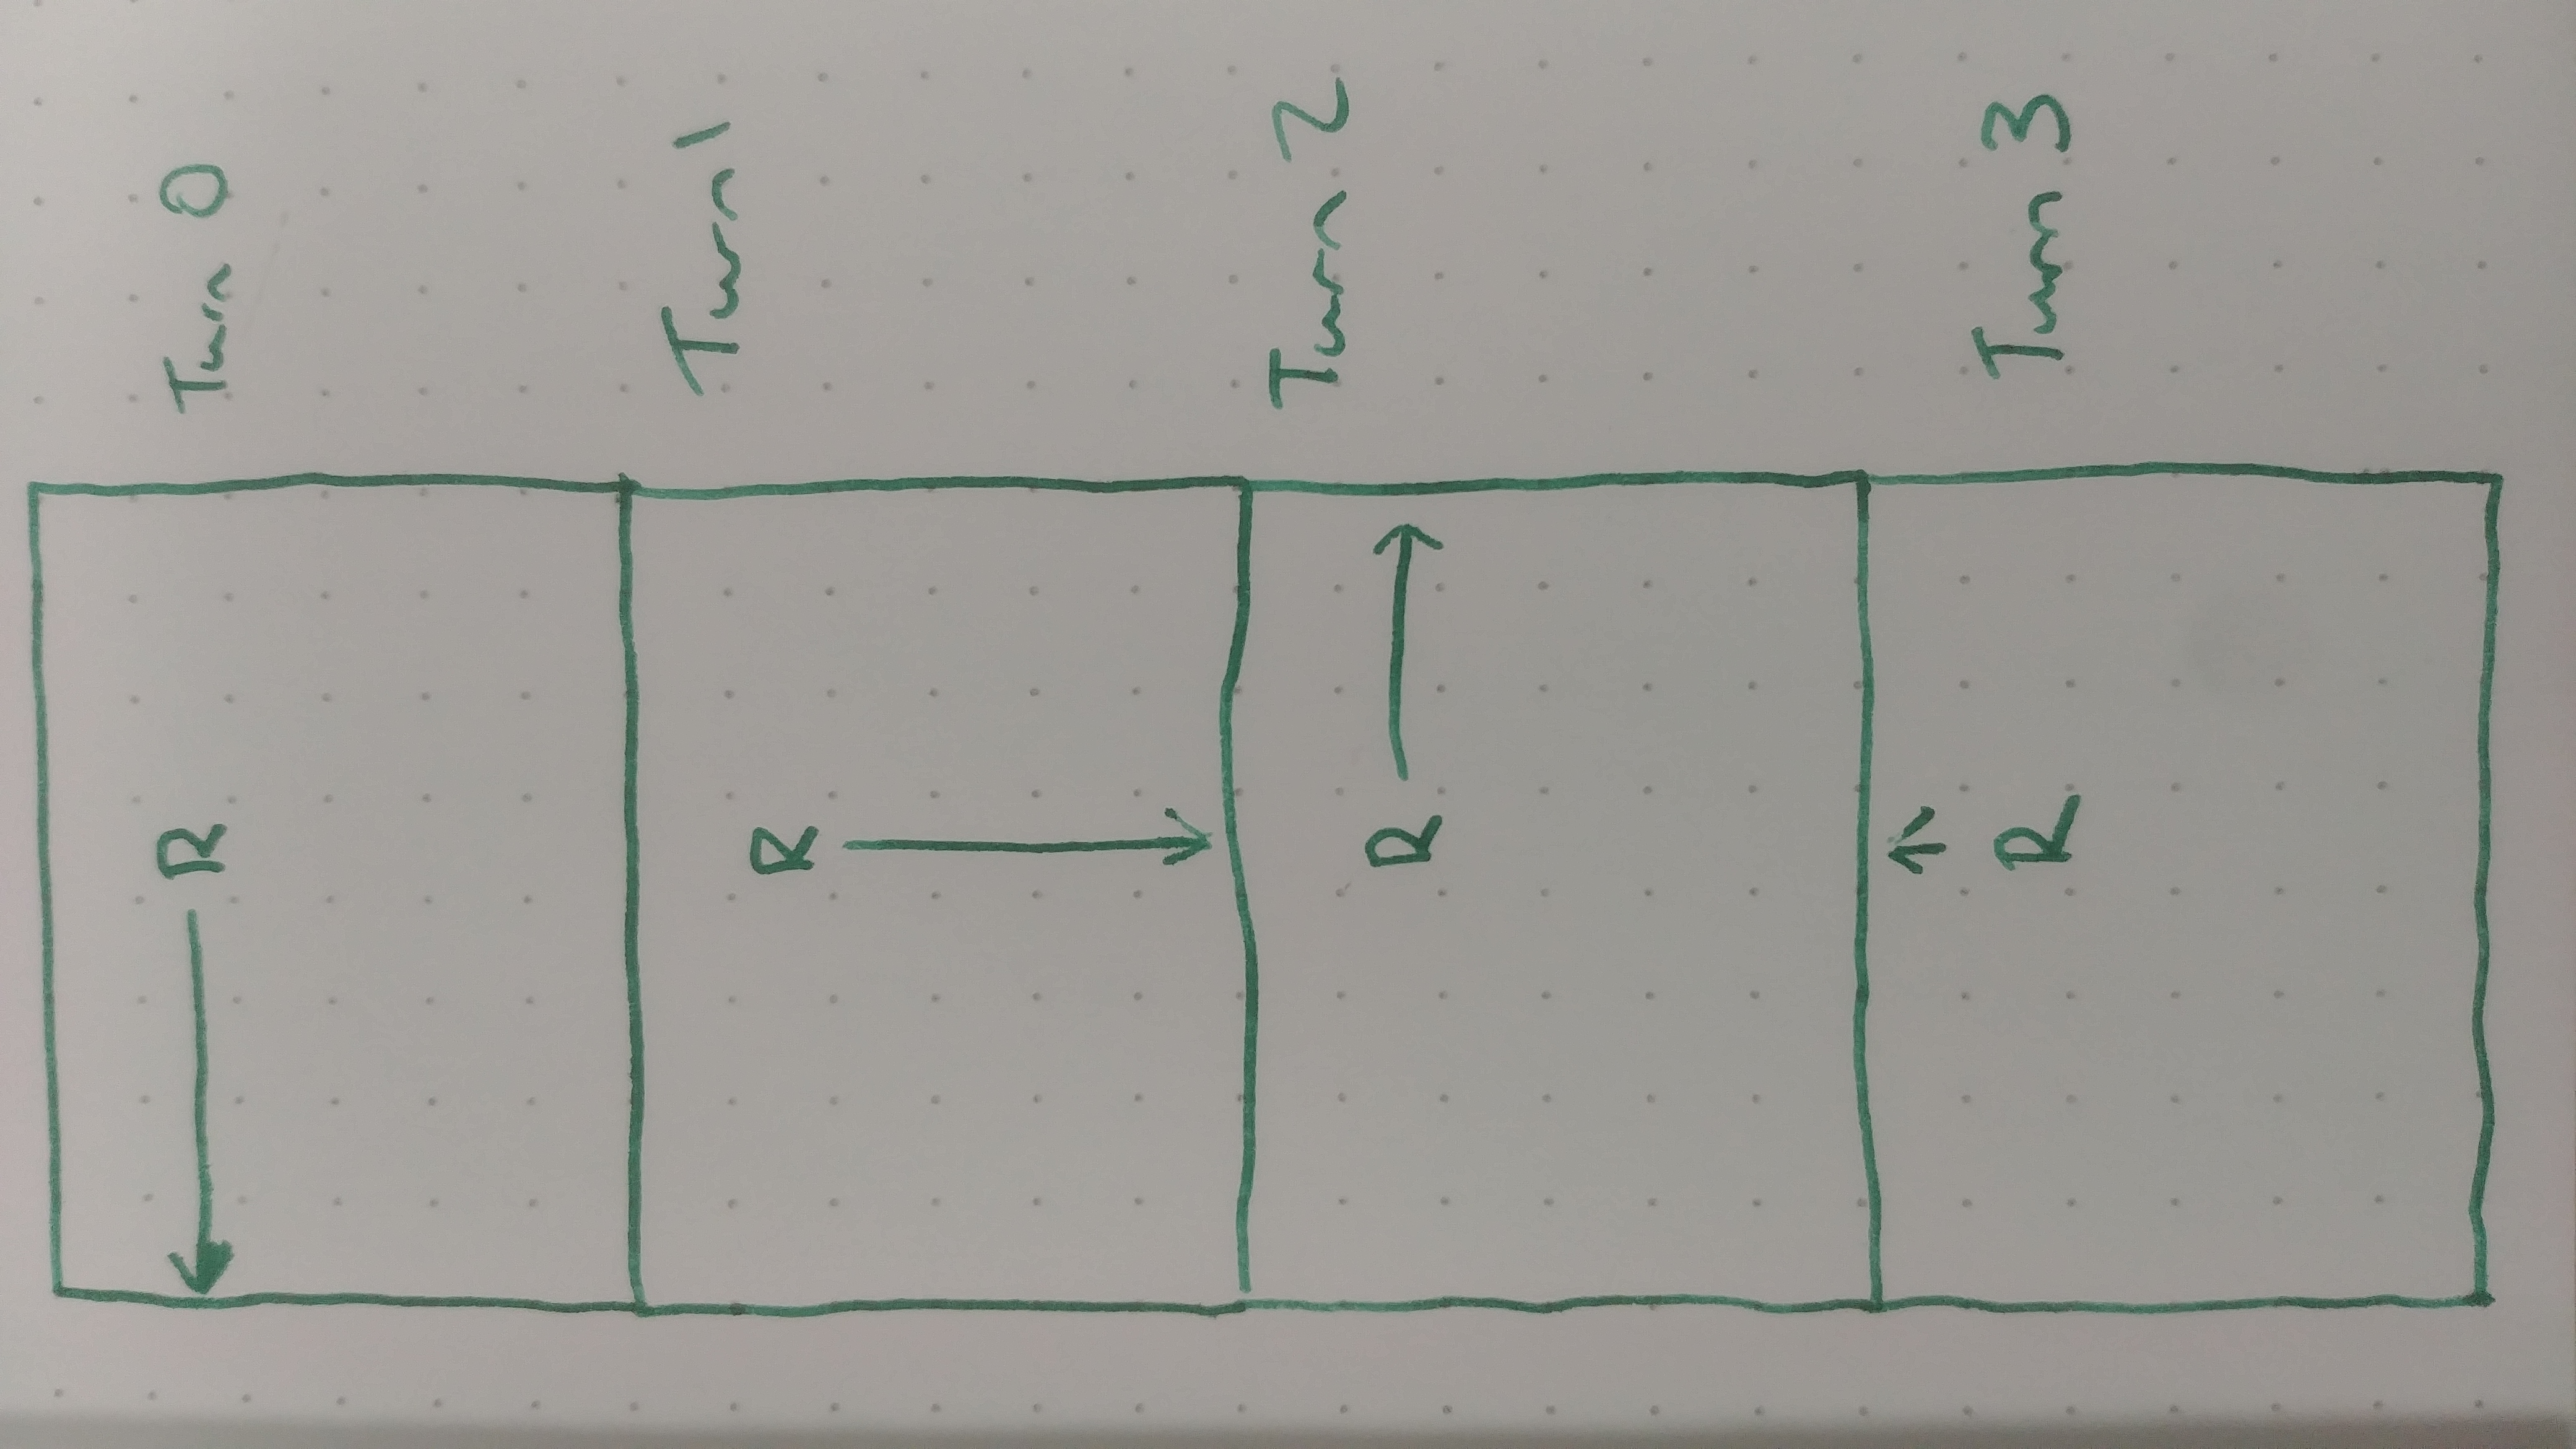 R Turn 0
Turn 1
R
Turn 2
R
Turn 3
R